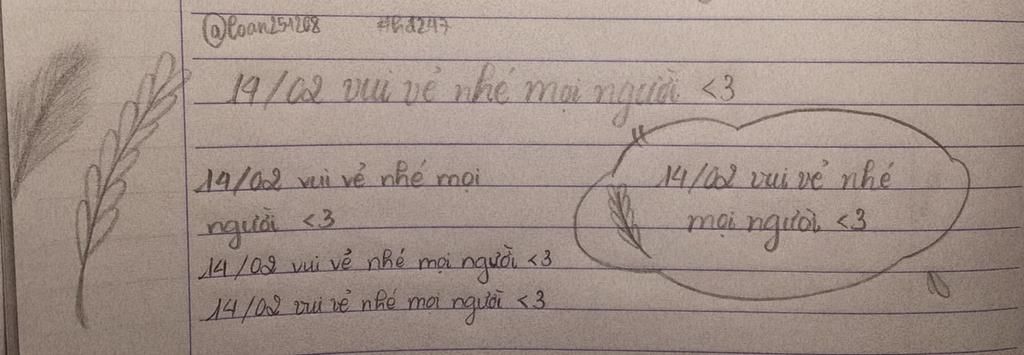 @loan251208 #hd247
14/02 vui vẻ nhé mọi người <3
14/02 vui vẻ nhé mọi
người <3
14/02 vui vẻ nhé mọi người <3
14/02 vui vẻ nhé mọi người <3
"
14/02 vui vẻ nhé
mọi người <3